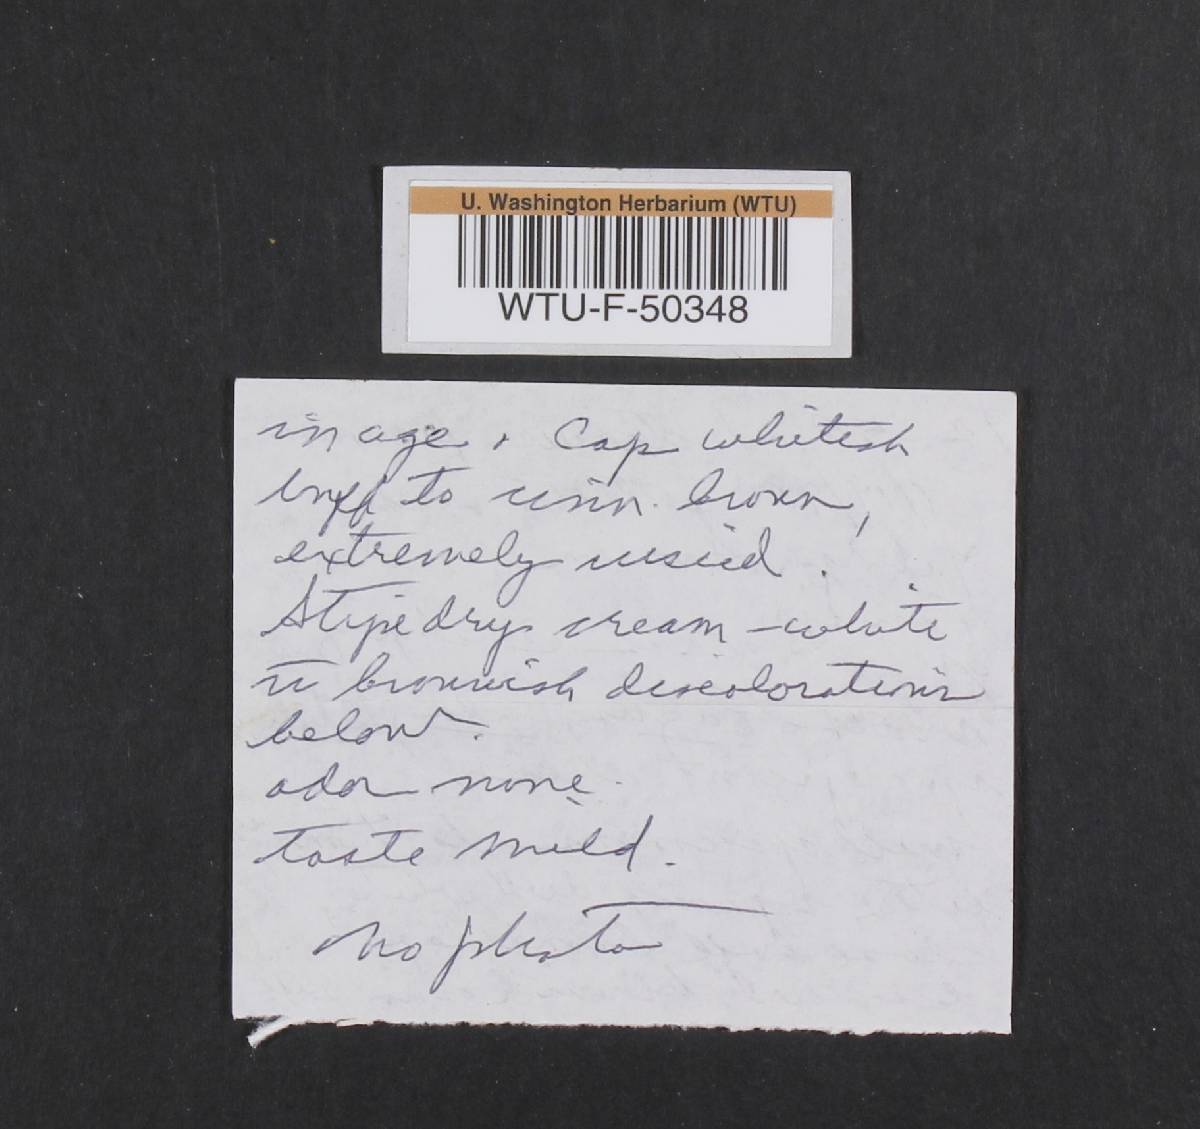 U. Washington Herbarium (WTU)
WTU-F-50348
in age. Cap whitish
buff to cinn. brown,
extremely viscid.
Stipe dry cream-white
c̄ brownish discolorations
below.
odor none.
taste mild.
No photo